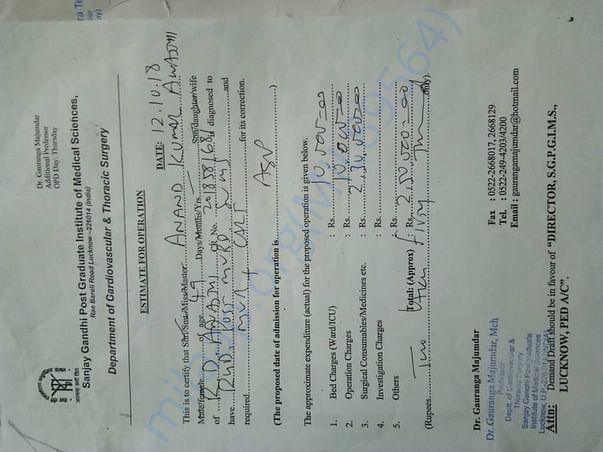 Dr. Gauranga Majumdar
Additional Professor
OPD Day: Thursday
Sanjay Gandhi Post Graduate Institute of Medical Sciences,
Rae Bareli Road Lucknow –226014 (India)
Department of Cardiovascular & Thoracic Surgery
ESTIMATE FOR OPERATION
DATE: 12.10.18
This is to certify that Shri/Smt/Miss/Master ANAND KUMAR AWASTHI
Male/female of age 49 Days/Months/Yrs. Son/daughter/wife
of CR No. 2018581681 is diagnosed to
have RHD and
required MVR + for its correction.
(The proposed date of admission for operation is ASAP )
The approximate expenditure (actual) for the proposed operation is given below.
1. Bed Charges (Ward/ICU) : Rs. 10,000=00
2. Operation Charges : Rs. 10,000=00
3. Surgical Consumables/Medicines etc. : Rs. 2,30,000=00
4. Investigation Charges : Rs.
5. Others : Rs.
Total: (Approx) : Rs. 2,50,000=00
(Rupees Two Lakh fifty Th only).
Dr. Gauranga Majumdar
Fax : 0522-2668017, 2668129
Tel. : 0522-249-42034200
Email : gaurangamajumdar@hotmail.com
Dr. Gauranga Majumdar, Mch
Professor
Deptt. of Cardiovascular &
Thoracic Surgery
Sanjay Gandhi Postgraduate
Institute of Medical Sciences
Lucknow, U.P.-226014 (INDIA)
Attn: Demand Draft should be in favour of "DIRECTOR, S.G.P.G.I.M.S.,
LUCKNOW, PED A/C".